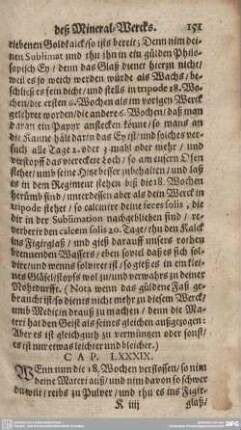 deß Mineral/Wercks. 151
diebenen Goldkalck/so ists bereit; Denn nim dei-
nen Sublimat und thu ihn in ein gülden Philo-
sophisch Ey / denn das Glaß dienet hierzu nicht/
weil es so weich werden würde als Wachs / be-
schließ es fein dicht/ und stells in tripode 18. Wo-
chen/die ersten 6. Wochen als im vorigen Werck
gelehret worden/die andere 6. Wochen/daß man
daran ein Papyr anstecken könne/so mans an
die Kanne hält darin das Ey ist/ und solches ver-
such alle Tage 2. oder 3 mahl oder mehr / und
verstopff das viereckete Loch/ so am eusern Ofen
stehet/umb seine Hitze besser zubehalten/ und laß
es in dem Regiment stehen biß die 18. Wochen
herümb sind/ unterdessen aber als dein Werck in
tripode stehet / so calcinire deine feces solis, die
dir in der Sublimation nachgeblieben sind / re-
verberir den calcem solis 20. Tage/thu den Kalck
ins Figirglaß/ und gieß darauff unsers rothen
brennenden Wassers/ eben soviel daß es sich sol-
vire/und wenns solviret ist/ so gieß es in ein klei-
nes Gläsel/stopfs wol zu/und verwahrs zu deiner
Nohtdurfft. (Nota wenn das güldene Faß ge-
braucht ist/so dienets nicht mehr zu diesem Werck/
umb Medicin drauß zu machen / denn die Ma-
teri hat den Geist als seines gleichen außgezogen:
Aber es ist gleichgut zu vermüntzen oder sonst/
es ist nur etwas leichter und bleicher.)
CAP. LXXXIX.
WEnn nun die 18. Wochen verflossen/ so nim
deine Materi auß/ und nim davon so schwer
du wilt; reibs zu Pulver / und thu es ins Figir-
K iiij glaß/